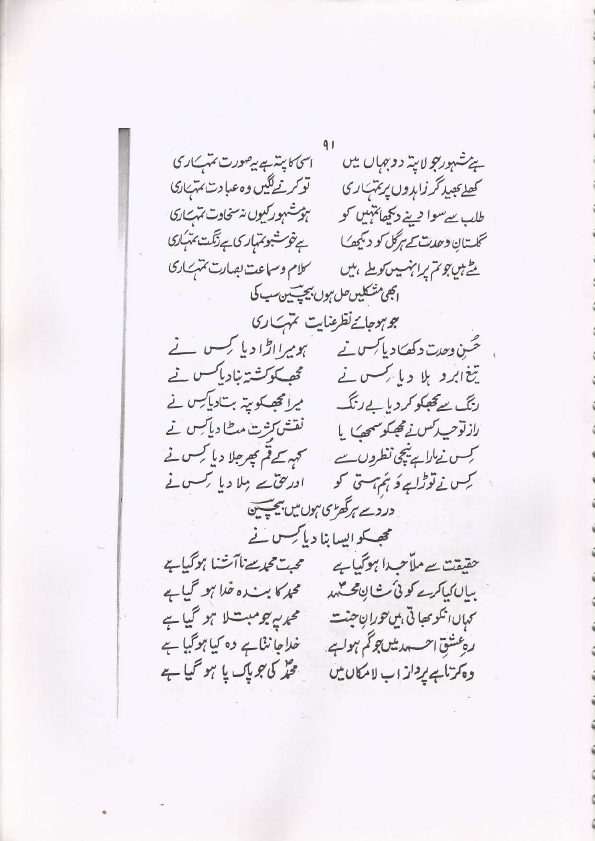 ۹۱
ہے مشہور جو لاپتہ دو جہاں میں اسی کا پتہ ہے یہ صورت تمہاری
کھلے بھید گر زاہدوں پر تمہاری تو کرنے لگیں وہ عبادت تمہاری
طلب سے سوا دیتے دیکھا تمہیں کو ہو مشہور کیوں نہ سخاوت تمہاری
گلستانِ وحدت کے ہر گل کو دیکھا ہے خوشبو تمہاری ہے رنگت تمہاری
مٹے ہیں جو تم پر انہیں کو ملے ہیں کلام و سماعت بصارت تمہاری
ابھی مشکلیں حل ہوں بیچین سب کی
جو ہو جائے نظر عنایت تمہاری
حُسنِ وحدت دکھا دیا کس نے ہو میرا اڑا دیا کِس نے
تیغ ابرو ہلا دیا کِس نے مجھکو کشتہ بنا دیا کس نے
رنگ سے مجھکو کر دیا بے رنگ میرا مجھکو پتہ بتا دیا کِس نے
راز توحید کس نے مجھکو سمجھایا نقش کثرت مٹا دیا کِس نے
کِس نے مارا ہے نیچی نظروں سے کہہ کے قُم پھر جلا دیا کِس نے
کِس نے توڑا ہے وَہمِ ہستی کو اور حق سے مِلا دیا کِس نے
درد سے ہر گھڑی ہوں میں بیچین
مجھکو ایسا بنا دیا کِس نے
حقیقت سے ملّا جدا ہو گیا ہے محبت محمد سے نا آشنا ہو گیا ہے
بیاں کیا کرے کوئی شانِ محمدؐ محمد کا بندہ خدا ہو گیا ہے
کہاں انکو بھاتی ہیں حورانِ جنت محمد پہ جو مبتلا ہو گیا ہے
رہِ عشقِ احمد میں جو گم ہوا ہے خدا جانتا ہے وہ کیا ہو گیا ہے
وہ کرتا ہے پرواز اب لامکاں میں محمدؐ کی جو پاک پا ہو گیا ہے